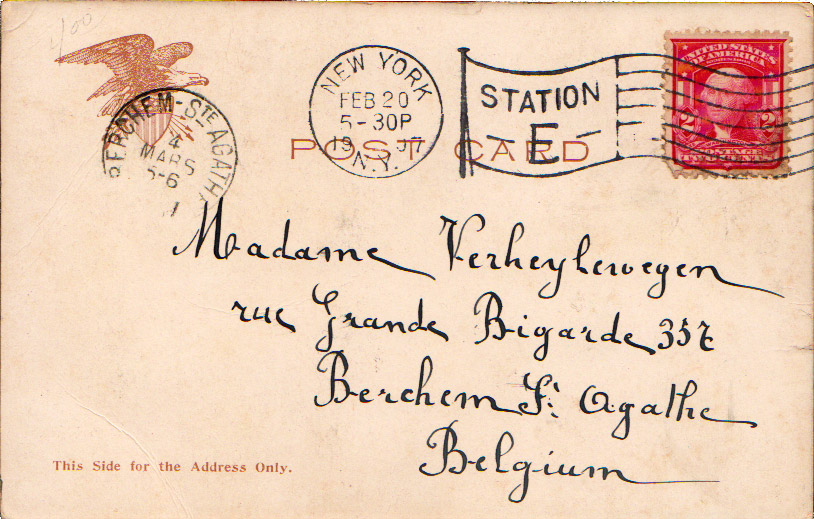 1/00
BERCHEM-STE AGATHE
4
MARS
5-6
NEW YORK
FEB 20
5-30P
19 07
N.Y.
STATION
E
UNITED STATES
OF AMERICA
2 2
POSTAGE
TWO CENTS
POST CARD
Madame Verheylewegen
rue Grande Bigarde 357
Berchem St. Agathe
Belgium
This Side for the Address Only.